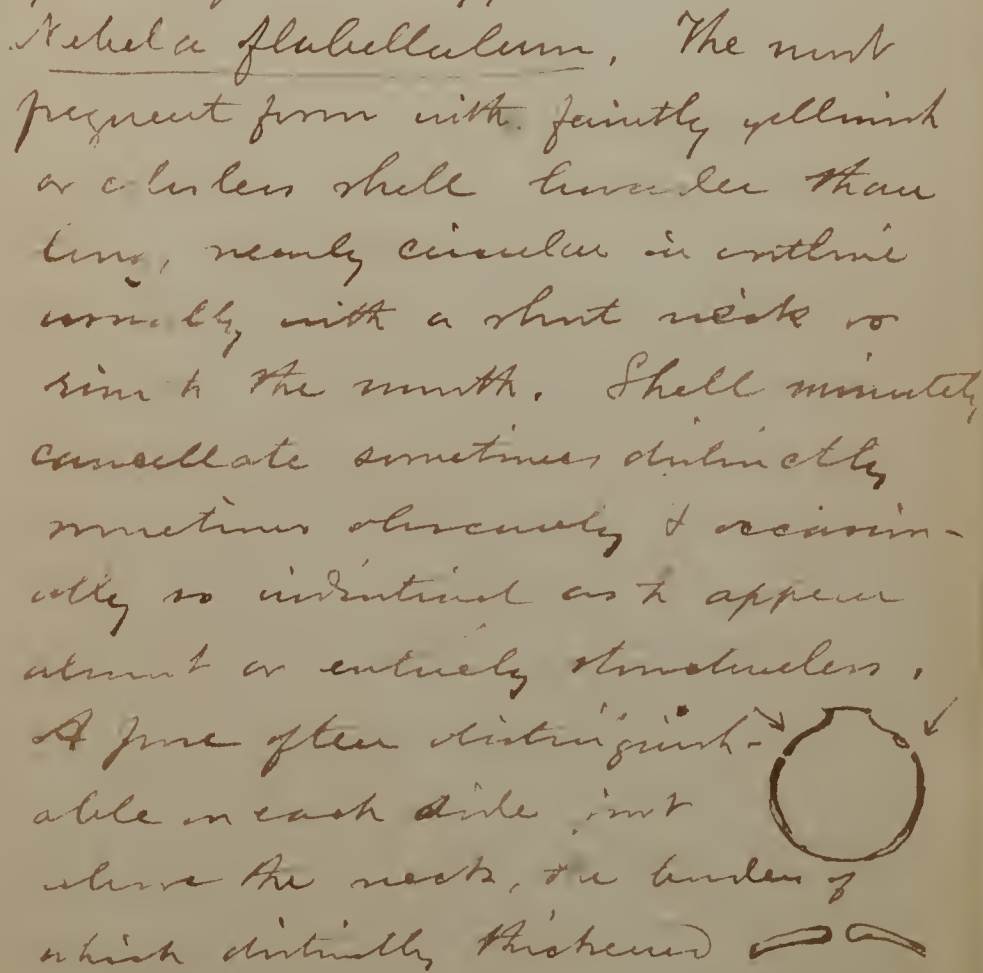 Nebela flabellulum. The most
frequent form with faintly yellowish
or colorless shell broader than
long, nearly circular in outline
usually with a short neck or
rim to the mouth. Shell minutely
cancellate sometimes distinctly
sometimes obscurely & occasion-
ally so indistinct as to appear
almost or entirely structureless.
A pore often distinguish-
able on each side just
above the neck, the border of
which distinctly thickened